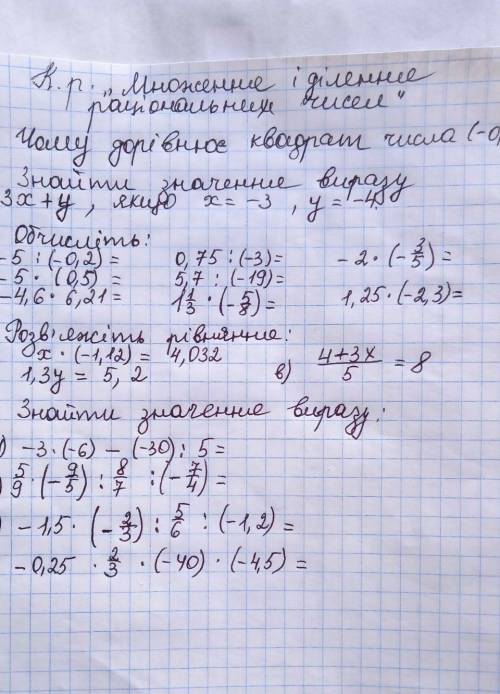 К. р. „Множення і ділення
раціональних чисел"
Чому дорівнює квадрат числа (-0
Знайти значення виразу
3x + y, якщо x = -3, y = -4
Обчисліть:
-5 : (-0,2) = 0,75 : (-3) = -2 · (-3/5) =
-5 · (0,5) = 5,7 : (-19) =
-4,6 · 6,21 = 1 1/3 · (-5/8) = 1,25 · (-2,3) =
Розв'яжіть рівняння:
x · (-1,12) = 4,032
1,3y = 5,2 в) (4+3x)/5 = 8
Знайти значення виразу:
) -3 · (-6) - (-30) : 5 =
) 5/9 · (-9/5) : 8/7 : (-7/4) =
) -1,5 · (-2/3) : 5/6 : (-1,2) =
-0,25 · 2/3 · (-40) · (-4,5) =